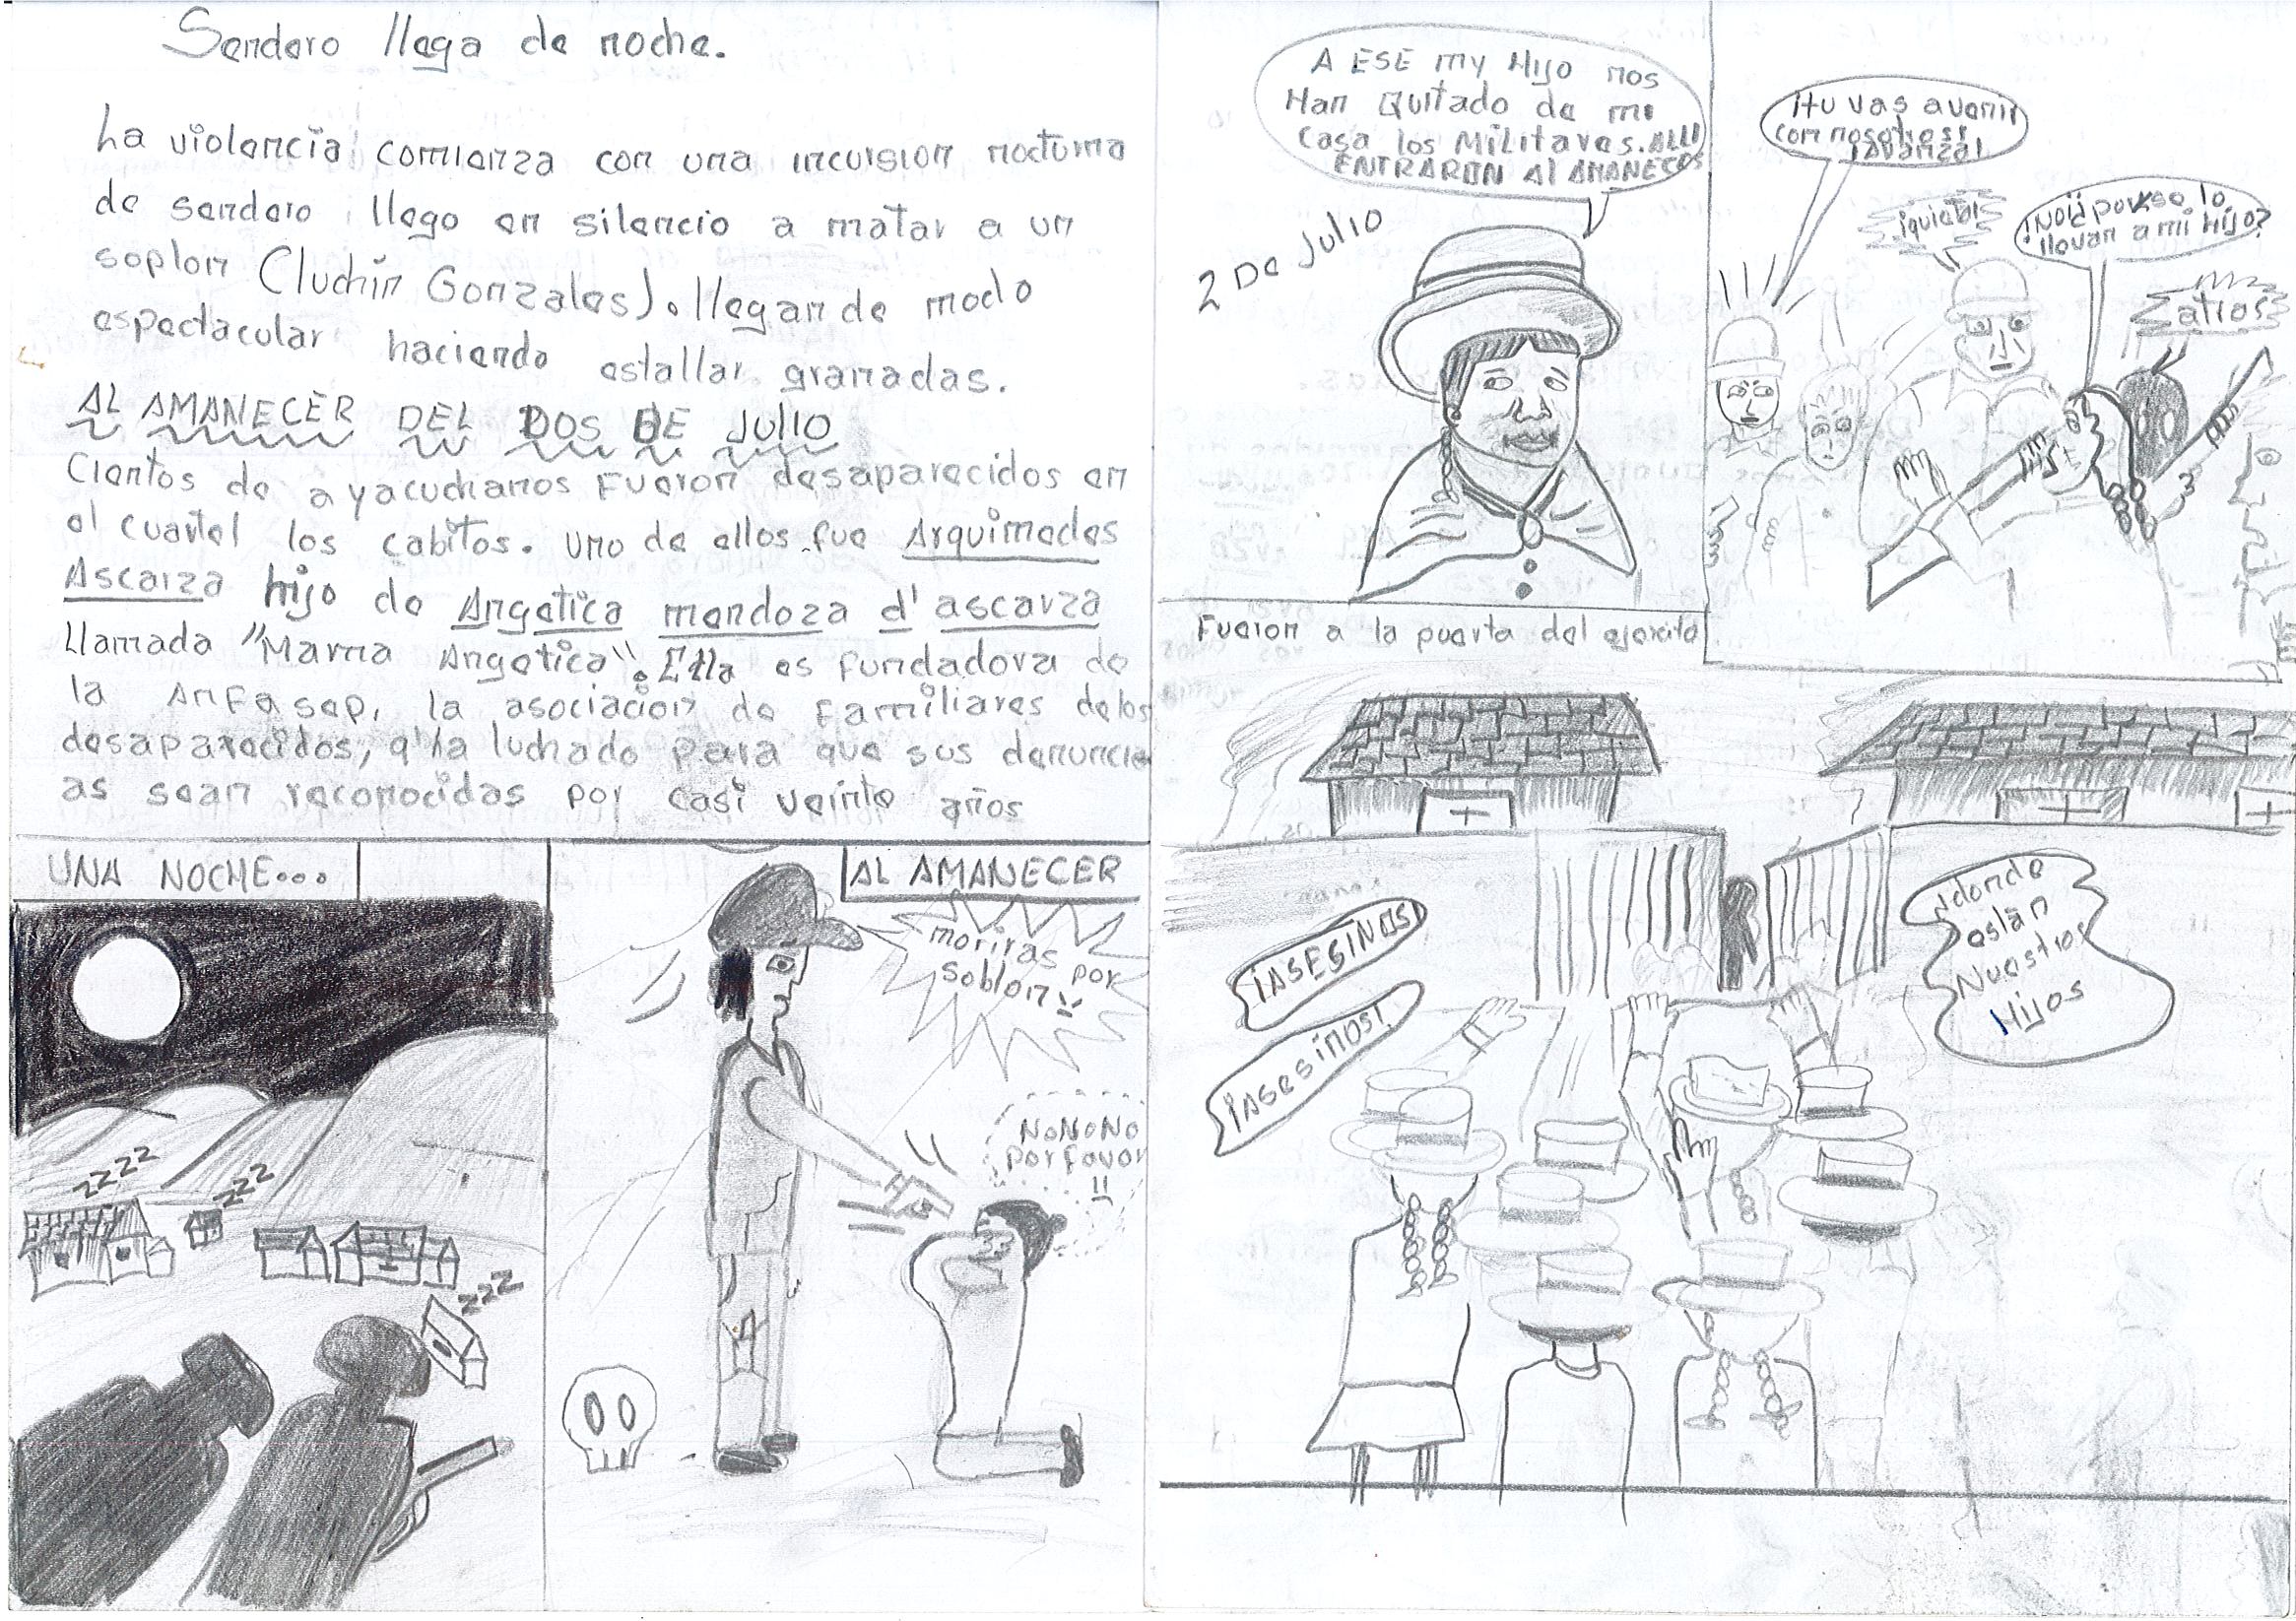 Sendero llega de noche.
La violencia comienza con una incursion nocturna
de sendero llego en silencio a matar a un
soplon (Luchin Gonzales). llegan de modo
espectacular haciendo estallar granadas.
AL AMANECER DEL DOS DE JULIO
Cientos de ayacuchanos Fueron desaparecidos en
el cuartel los cabitos. uno de ellos fue Arquimedes
Ascarza hijo de Angetica mendoza d' ascarza
llamada "Mama Angetica". Ella es fundadora de
la Anfasep, la asociacion de Familiares delos
desaparecidos, q'ha luchado para que sus denunci
as sean reconocidas por casi veinte años
UNA NOCHE...
zzzz
zzz
zzz
AL AMANECER
moriras por
soblon!!
NoNoNo
por favor
!!
A ESE my Hijo nos
Han Quitado de mi
casa los Militares. ALLI
ENTRARON Al AMANECOS
2 De Julio
¡tu vas avenir
con nosotros!
¡avanza!
¡quieto!
¡No¡¡ porqe lo
llevan a mi Hijo?
atras
Fueron a la puerta del ejercito
¡ASESINOS!
¡Asesinos!
¿donde
están
Nuestros
Hijos